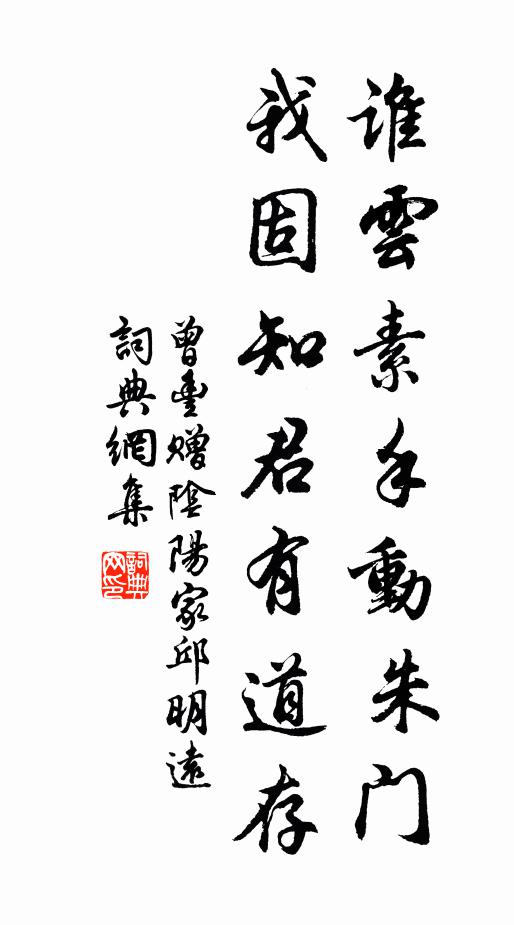 誰雲素手動朱門
我固知君有道存
曾豐贈陰陽家邱明遠
詞典網集
詞典
网印